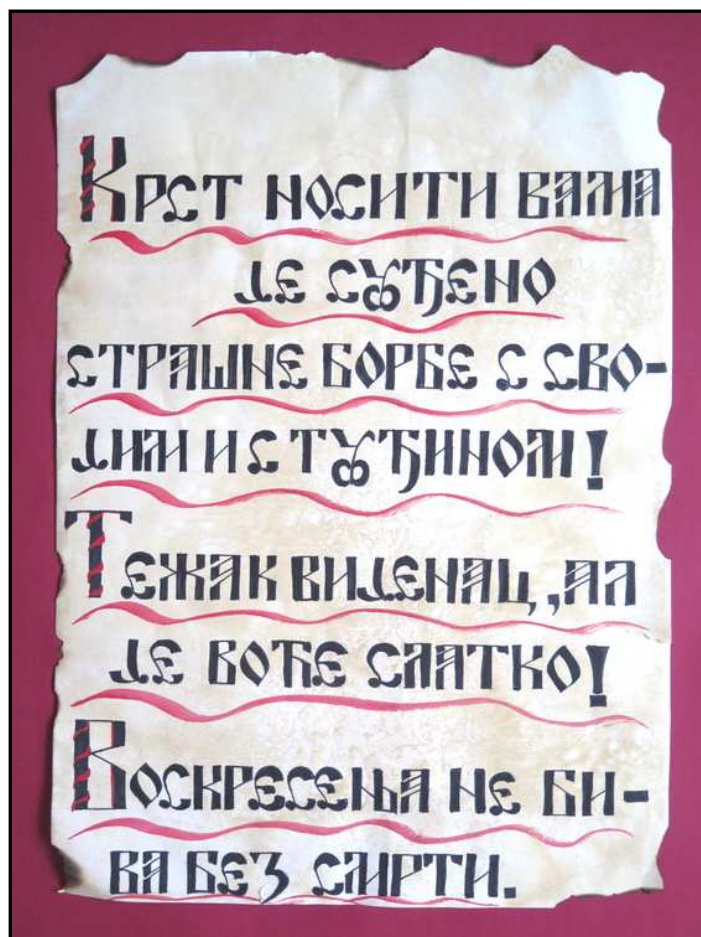 Крст носити вама
је суђено
страшне борбе с сво-
јим и с туђином!
Тежак вијенац, ал
је воће слатко!
Воскресења не би-
ва без смрти.